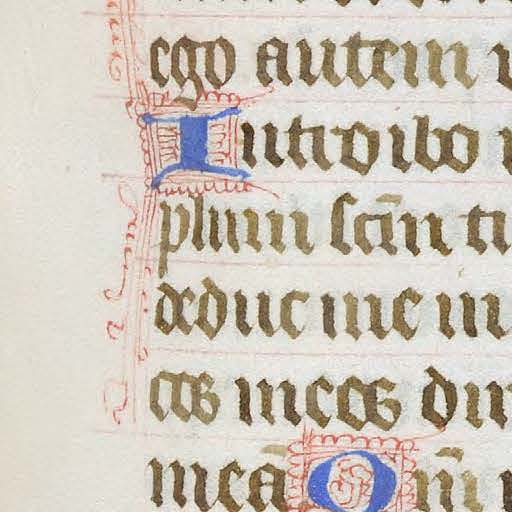 ego autem
Introibo
plum scm̄ tu
deduc me in
cos meos diri
meā Qm̄